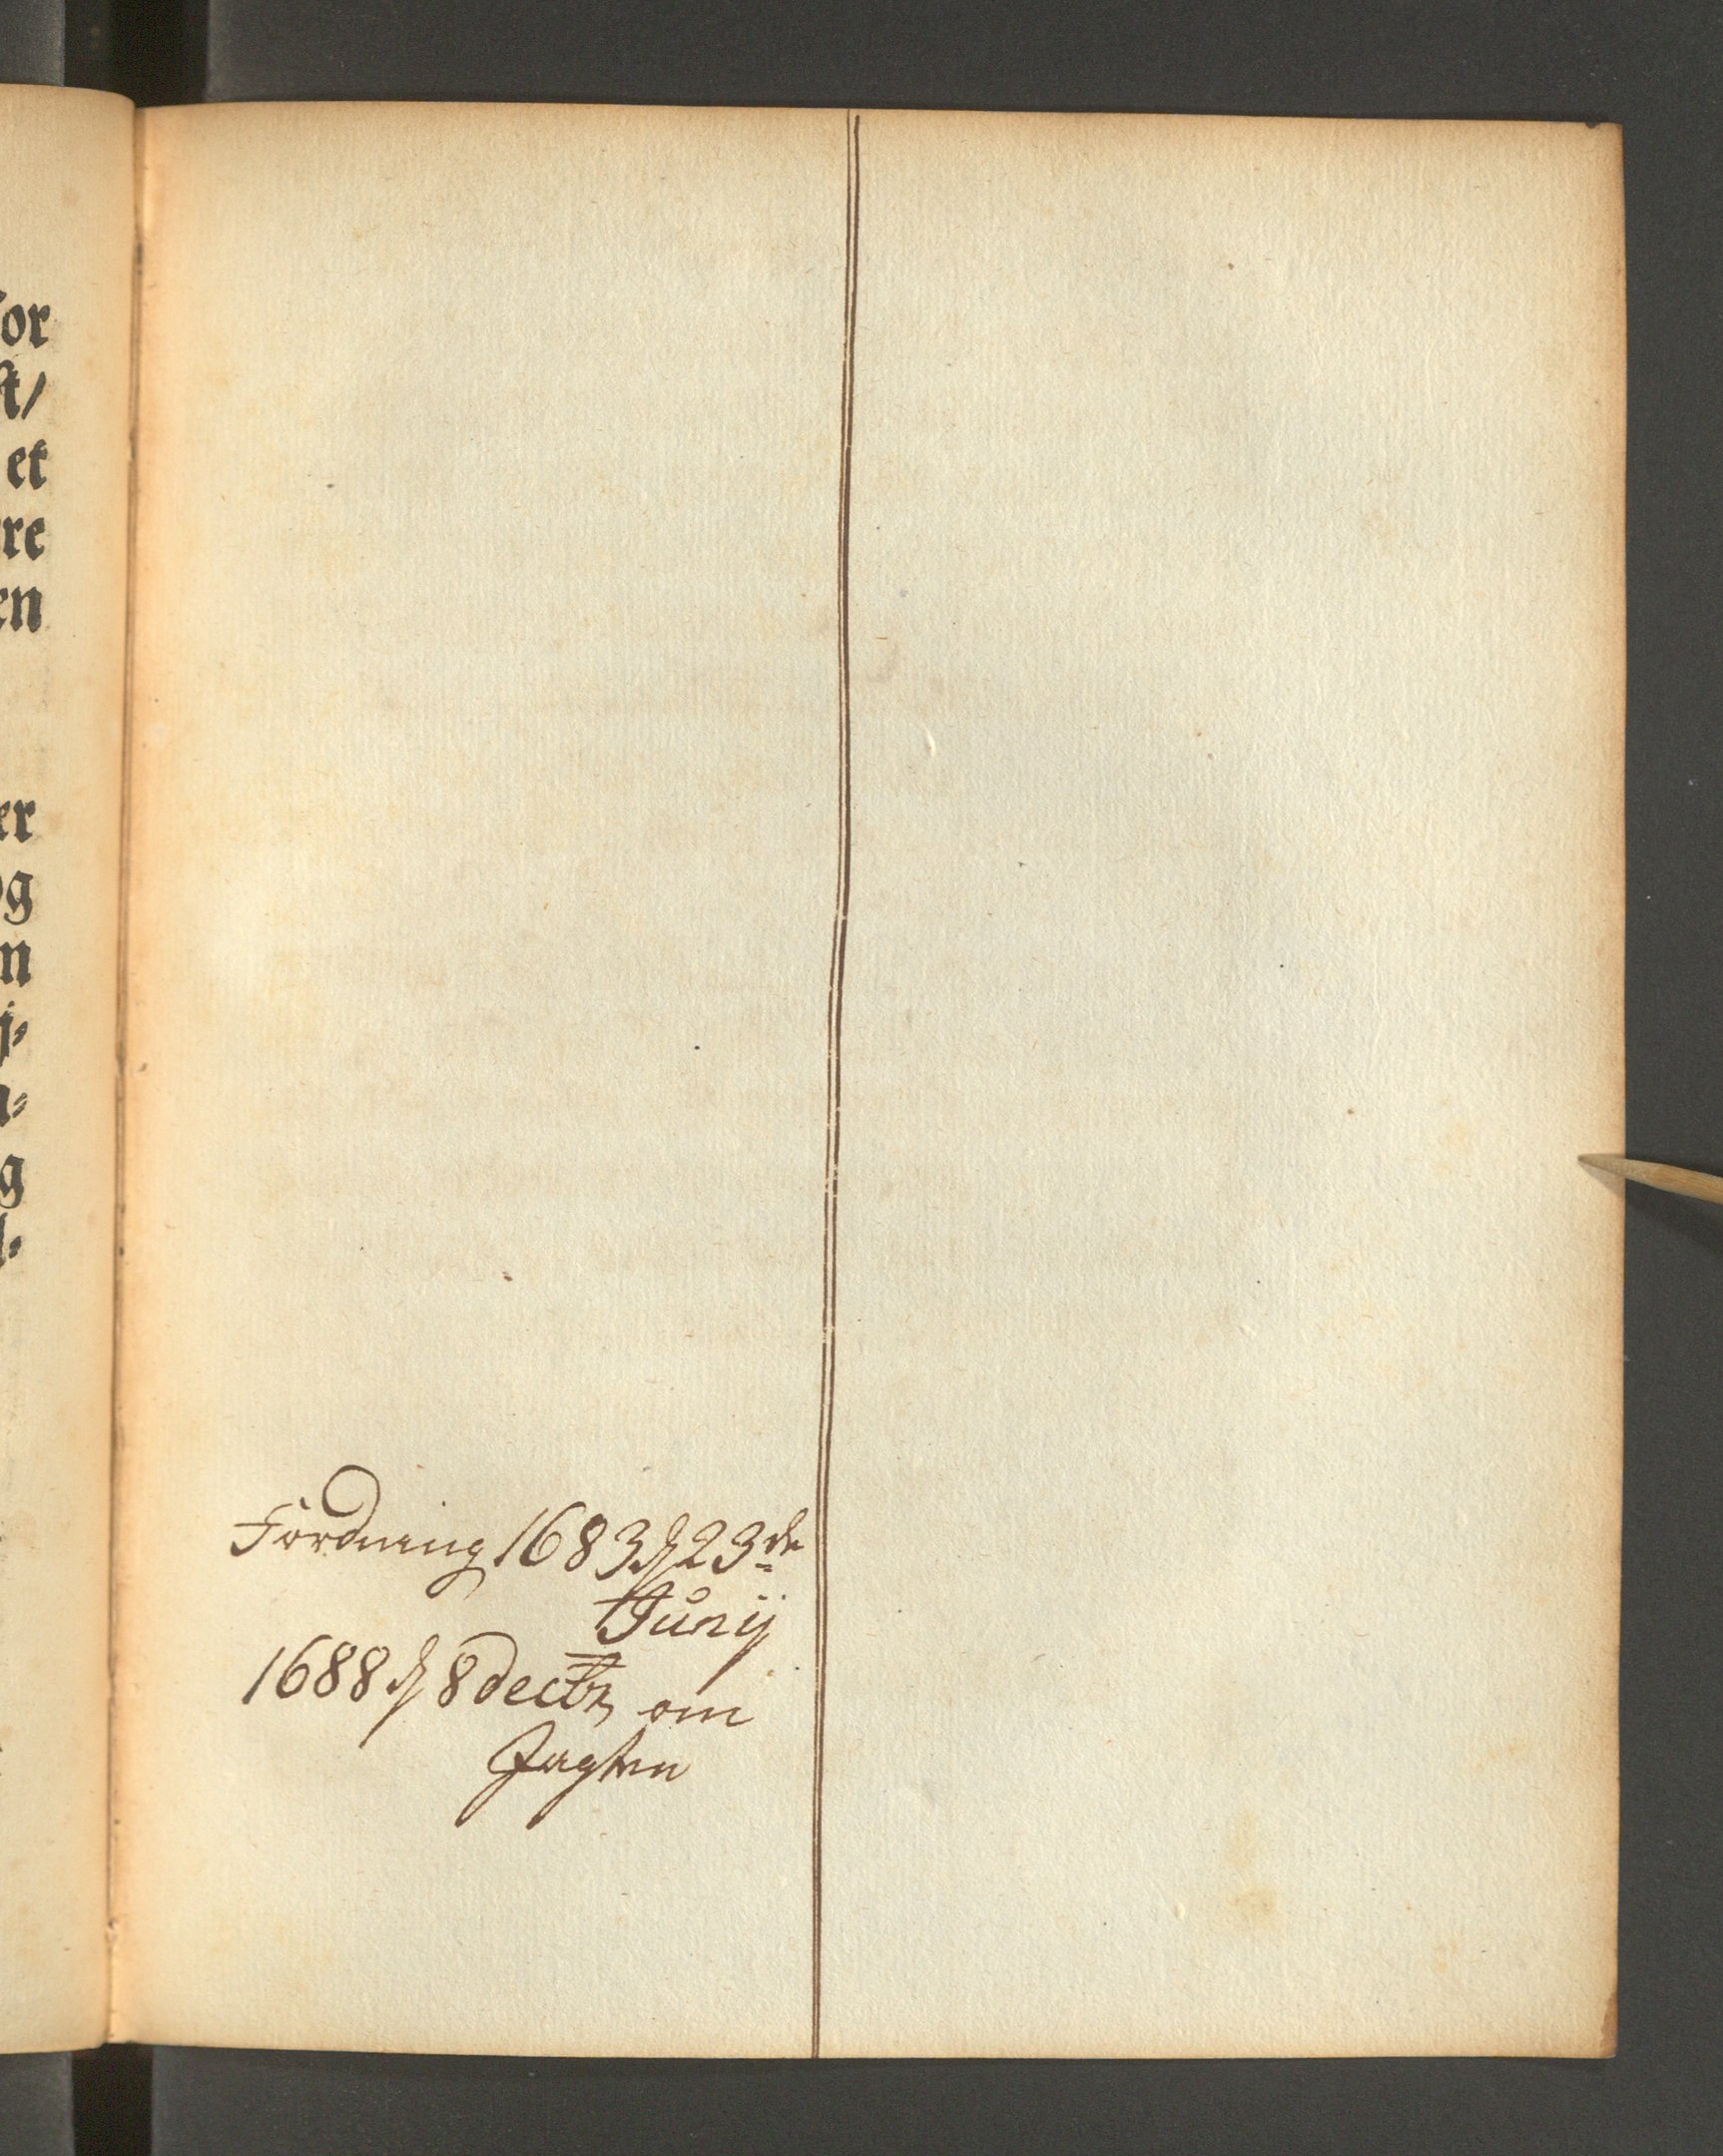 or
st/
et
re
en
er
og
n
j-
g
Fordning 1683 d 23de
Junij
1688 d 8 decbr om
Jagten